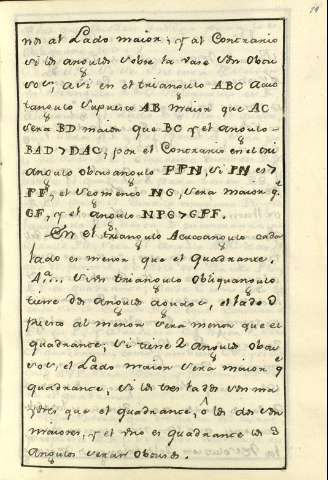 nor al Lado maior; y al Contrario
si los angulos sobre la vase son obtu
sos; asi en el triangulo ABC acu
tangulo supuesto AB maior que AC
sera BD maior que BC y el angulo
BAD > DAC, por el Contrario en el tri
angulo obtusangulo FPN, si PN es >
PF, el segmento NG, sera maior q.e
GF, y el angulo NPG > GPF.
En el triangulo Acutangulo cada
lado es menor que el quadrante.
4.a si un triangulo obliquangulo
tiene dos angulos agudos, el lado o
puesto al menor sera menor que el
quadrante; si tiene 2 angulos obtu
sos, el Lado maior sera maior q
quadrante; si los tres lados son ma
yores que el quadrante, ô los dos son
maiores, y el uno es quadrante los 3
Angulos seran obtusos.